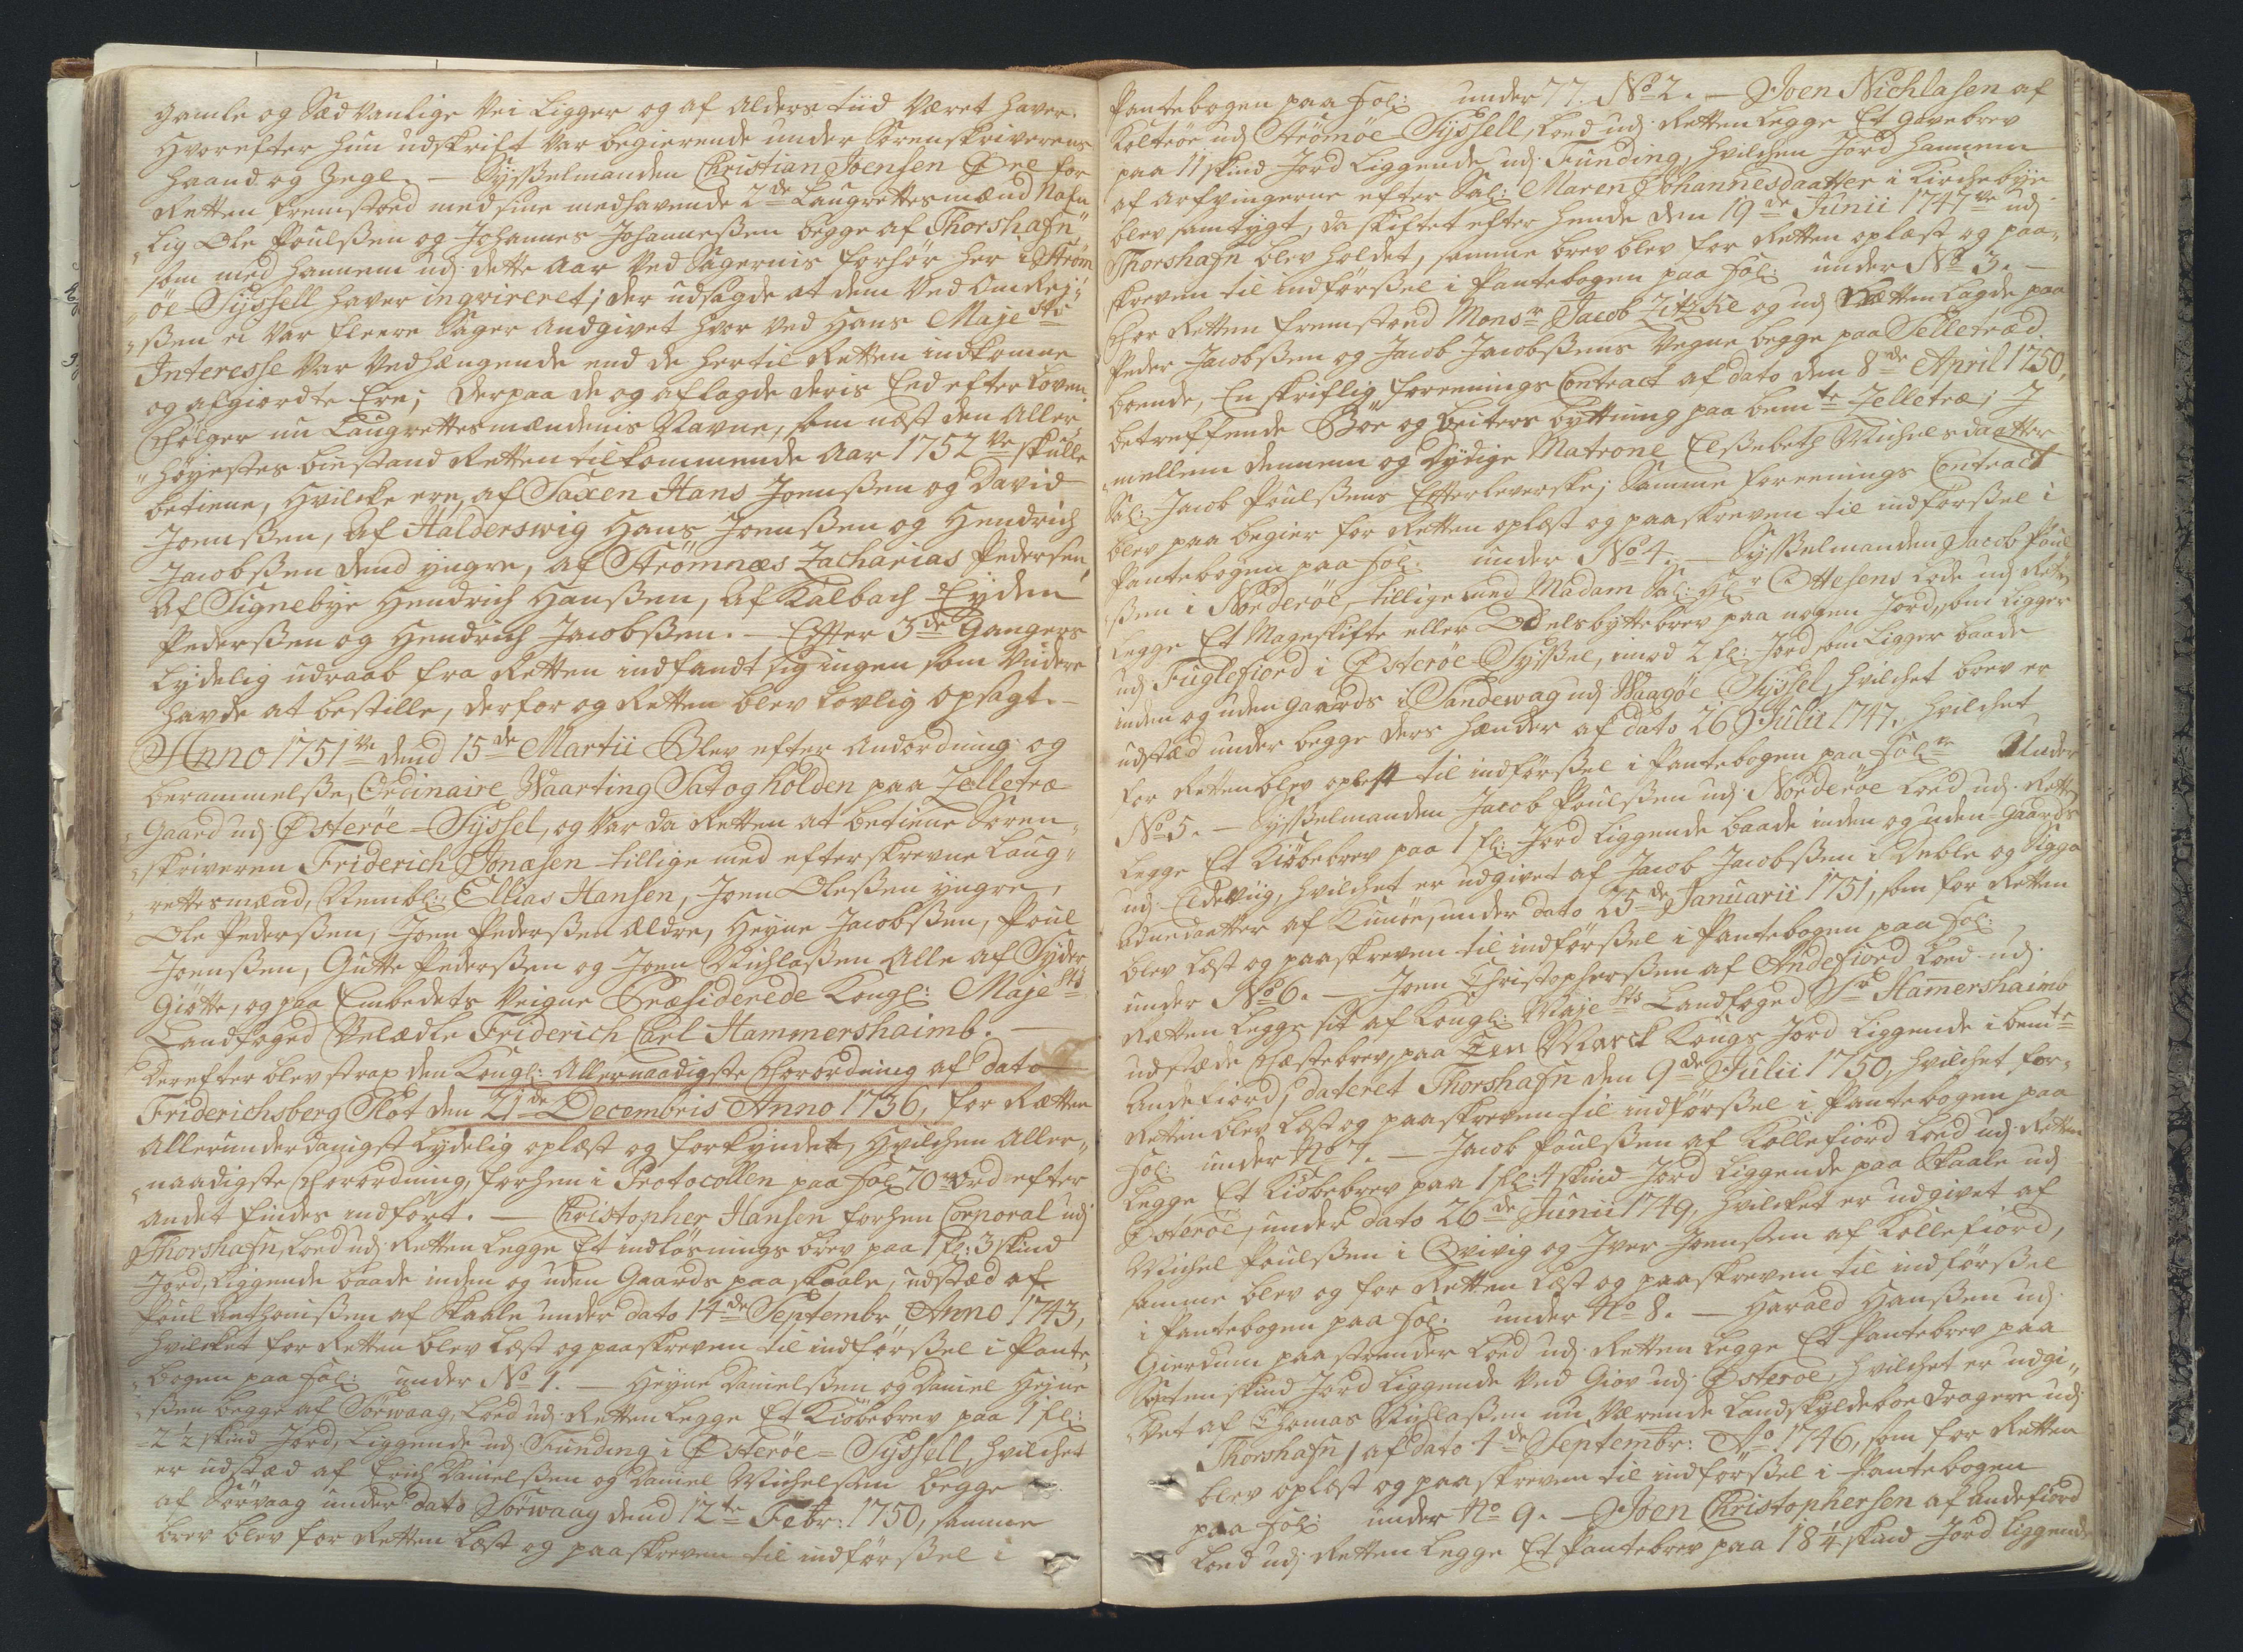 gamle og Sædvanlige Vei Ligger og af Alders tiid Været haver.
Hvorefter hun udskrift Var begierende under Sorenskriverens
Haand og Zegl. — Sysselmanden Christian Joensen Øre for
Retten fremstoed med sine medhavende 2de Laugrettesmænd Nafn
„lig Ole Poulssen og Johannes Johannessen begge af Thorshafn„
som med hannem udj dette Aar Ved Sagernis forhør her i Strøm
„øe Syssell haver inqvireret; der udsagde at dem Ved Omrej„
„ssen ei Var fleere Sager Andgivet hvor Ved Hans Majesttz
Interesse Var Vedhængende end de hertil Retten indkomne
og afgiordte Ere; derpaa de og aflagde deris Eed efter Loven.
Følger nu Laugrettesmændenis Navne, som næst den Aller„
„Høyestes biestand Retten tilkommende Aar 1752ve skulle
betiene, Hvilcke ere, af Saxen Hans Joenssen og David
Joenssen, Af Halderswig Hans Joenssen og Hendrich
Jacobssen dend yngre, af Strømnæs Zacharias Pedersen,
Af Signebye Hendrich Hanssen, Af Kalbach Eyden
Pederssen og Hendrich Jacobssen. — Efter 3de Gangers
Lydelig udraab fra Retten indfandt sig ingen som Videre
havde at bestille, derfor og Retten blev Lovlig Opsagt. —
Anno 1751ve dend 15de Martii Blev efter Andordning og
berammelsse, Ordinaire Waarting Sat og holden paa Zelletræ
Gaard udj Østerøe-Syssel, og Var da Retten at betiene Soren„
„skriveren Friderich Jonasen tillige med efterskrevne Laug„
„rettesmænd, Nembl: Ellias Hansen, Joen Olessen yngre,
Ole Pederssen, Joen Pederssen Ældre, Heyne Jacobssen, Poul
Joenssen, Gutte Pederssen og Joen Nichlassen Alle af Syder
Giøtte, og paa Embedets Veigne Præsiderede Kongl: Majestts
Landfoged Velædle Friderich Carl Hammershaimb. —
Derefter blev strax den Kongl: Allernaadigste Forordning af dato
Friderichsberg Slot den 21de Decembris Anno 1736, for Retten
Allerunderdanigst Lydelig oplæst og forkyndet, Hvilchen Aller„
„naadigste Forordning, forhen i Protocollen paa fol: 70 ord efter
andet findes indført. — Christopher Hansen forhen Corporal udj
Thorshafn, Loed udj Retten Legge Et indløsnings brev paa 1 fl: 3 skind
Jord, Liggende baade inden og uden Gaards paa skaale, udstæd af
Poul Anthonissen af Skaale under dato 14de Septembr Anno 1743,
Hvilcket for Retten blev Læst og paaskreven til indførssel i Pante„
„bogen paa fol: under No 1. — Heyne Danielssen og Daniel Heyne
„ssen begge af Sørwaag, Loed udj Retten Legge Et Kiøbebrev paa 1 fl:
2½ skind Jord, Liggende udj Funding i Østerøe-Syssell, Hvilchet
er udstæd af Erich Danielssen og Daniel Michelssen begge
af Sørvaag under dato Sørwaag dend 12te Febr: 1750, samme
brev blev for Retten Læst og paaskreven til indførssel i
Pantebogen paa fol: under 77. No 2. — Joen Nichlasen af
Koltrøe udj Strømøe-Syssell, Loed udj Retten Legge Et Gavebrev
paa 11 skind Jord Liggende udj Funding, hvilchen Jord hannem
af Arfvingerne efter Sal: Maren Johannesdaatter i Kirchebye
blev samtygt, da skiftet efter hende den 19de Junii 1747ve udj
Thorshafn blev holdet, samme brev blev for Retten oplæst og paa„
skreven til indførssel i Pantebogen paa fol: under No 3. —
For Retten fremstoed Monsr Jacob Zitzkie og udj Rætten Lagde paa
Peder Jacobssen og Jacob Jacobssens Vegne begge paa Selletræd
boende, En skriftlig foreenings Contract af dato den 8de April 1750,
betreffende Bøe og beiters byttning paa bemte Zelletræ; J
„mellem dennem og Dydige Matrone Elssebeth Michelsdaatter
Sal: Jacob Poulssens Efterleverske; Samme foreenings Contract
blev paa begier for Retten oplæst og paaskreven til indførssel i
Pantebogen paa fol: under No 4. — Sysselmanden Jacob Poul
ssen i Norderøe, tillige med Madam Sal: Hr Ottesens Lode udj Retten
Legge Et Mageskifte eller Odelsbyttebrev paa nogen Jord, som Ligger
udj Fuglefiord i Østerøe-Syssel, imod 2 fl: Jord som Ligger baade
inden og uden gaards i Sandewag udj Waagøe Syssel, hvilchet brev er
udstæd under begge ders Hænder af dato 26 Julii 1747, hvilchet
for Retten blev oplæst til indførssel i Pantebogen paa fol: Under
No 5. — Sysselmanden Jacob Poulssen udj Norderøe Loed udj Retten
Legge Et Kiøbebrev paa 1 fl: Jord Liggende baade inden og uden gaards
udj Eldevig, hvilchet er udgivet af Jacob Jacobssen i Deble og Sigga
Adnedaatter af Kunøe, under dato 25de Januarii 1751, som for Retten
blev Læst og paaskreven til indførssel i Pantebogen paa fol:
under No 6. — Joen Christopherssen af Andefiord Loed udj
Rætten Legge sit af Kongl: Majestts Landfoged Sr Hamershaimb
udstæde Fæstebrev, paa Een Marck Kongs Jord Liggende i bemte
Andefiord, dateret Thorshafn den 9de Julii 1750, hvilchet for„
Retten blev Læst og paaskreven til indførssel i Pantebogen paa
fol: under No 7. — Jacob Poulssen af Kollefiord Loed udj Retten
Legge Et Kiøbebrev paa 1 fl: 4 skind Jord Liggende paa Skaale udj
Østerøe, under dato 26de Junii 1749, hvilcket er udgivet af
Michel Poulssen i Qvivig og Iver Joenssen af Kollefiord,
samme blev og for Retten Læst og paaskreven til indførssel
i Pantebogen paa fol: under No 8. — Harald Hanssen udj
Gierdum paa strender Loed udj Retten Legge Et Pantebrev paa
skind Jord Liggende Ved Giov udj Østerøe, hvilchet er udgi„
„vet af Thomas Nichlassen nu Værende Landskyldeboedragere udj
Thorshafn, af dato 4de Septembr: Ao 1746, som for Retten
blev oplæst og paaskreven til indførssel i Pantebogen
paa fol: under No 9. — Joen Christophersen af Andefiord
Loed udj Retten Legge Et Pantebrev paa 18¼ skind Jord Liggende